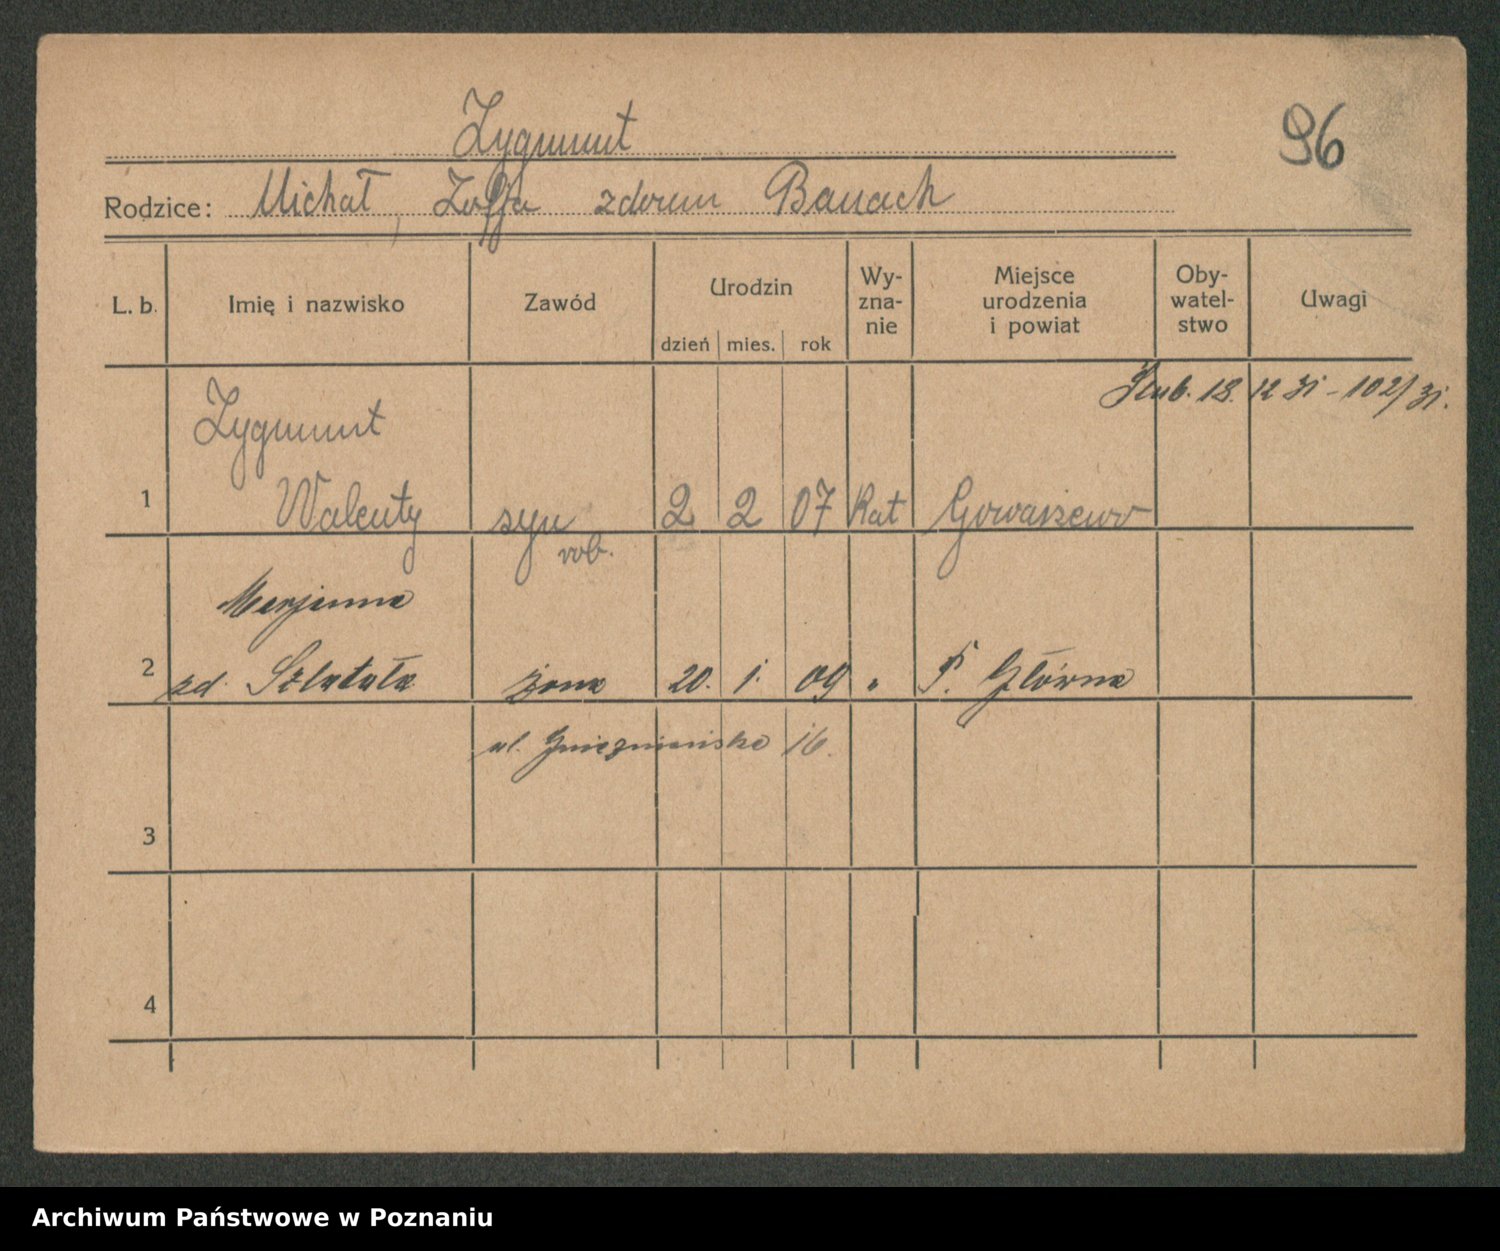 Zygmunt
96
Rodzice: Michał, Zofja zdomu Banach
L. b. Imię i nazwisko Zawód Urodzin dzień mies. rok Wy-zna-nie Miejsce urodzenia i powiat Oby-watel-stwo Uwagi
ślub. 18. 12 31 - 102/31.
Zygmunt
1 Walenty syn 2 2 07 Kat Gowarzewo
rob.
Marjanna
2 zd. żona 20. 1. 09 " P. Główna
ul. Gnieźnieńska 16.
3
4
Archiwum Państwowe w Poznaniu